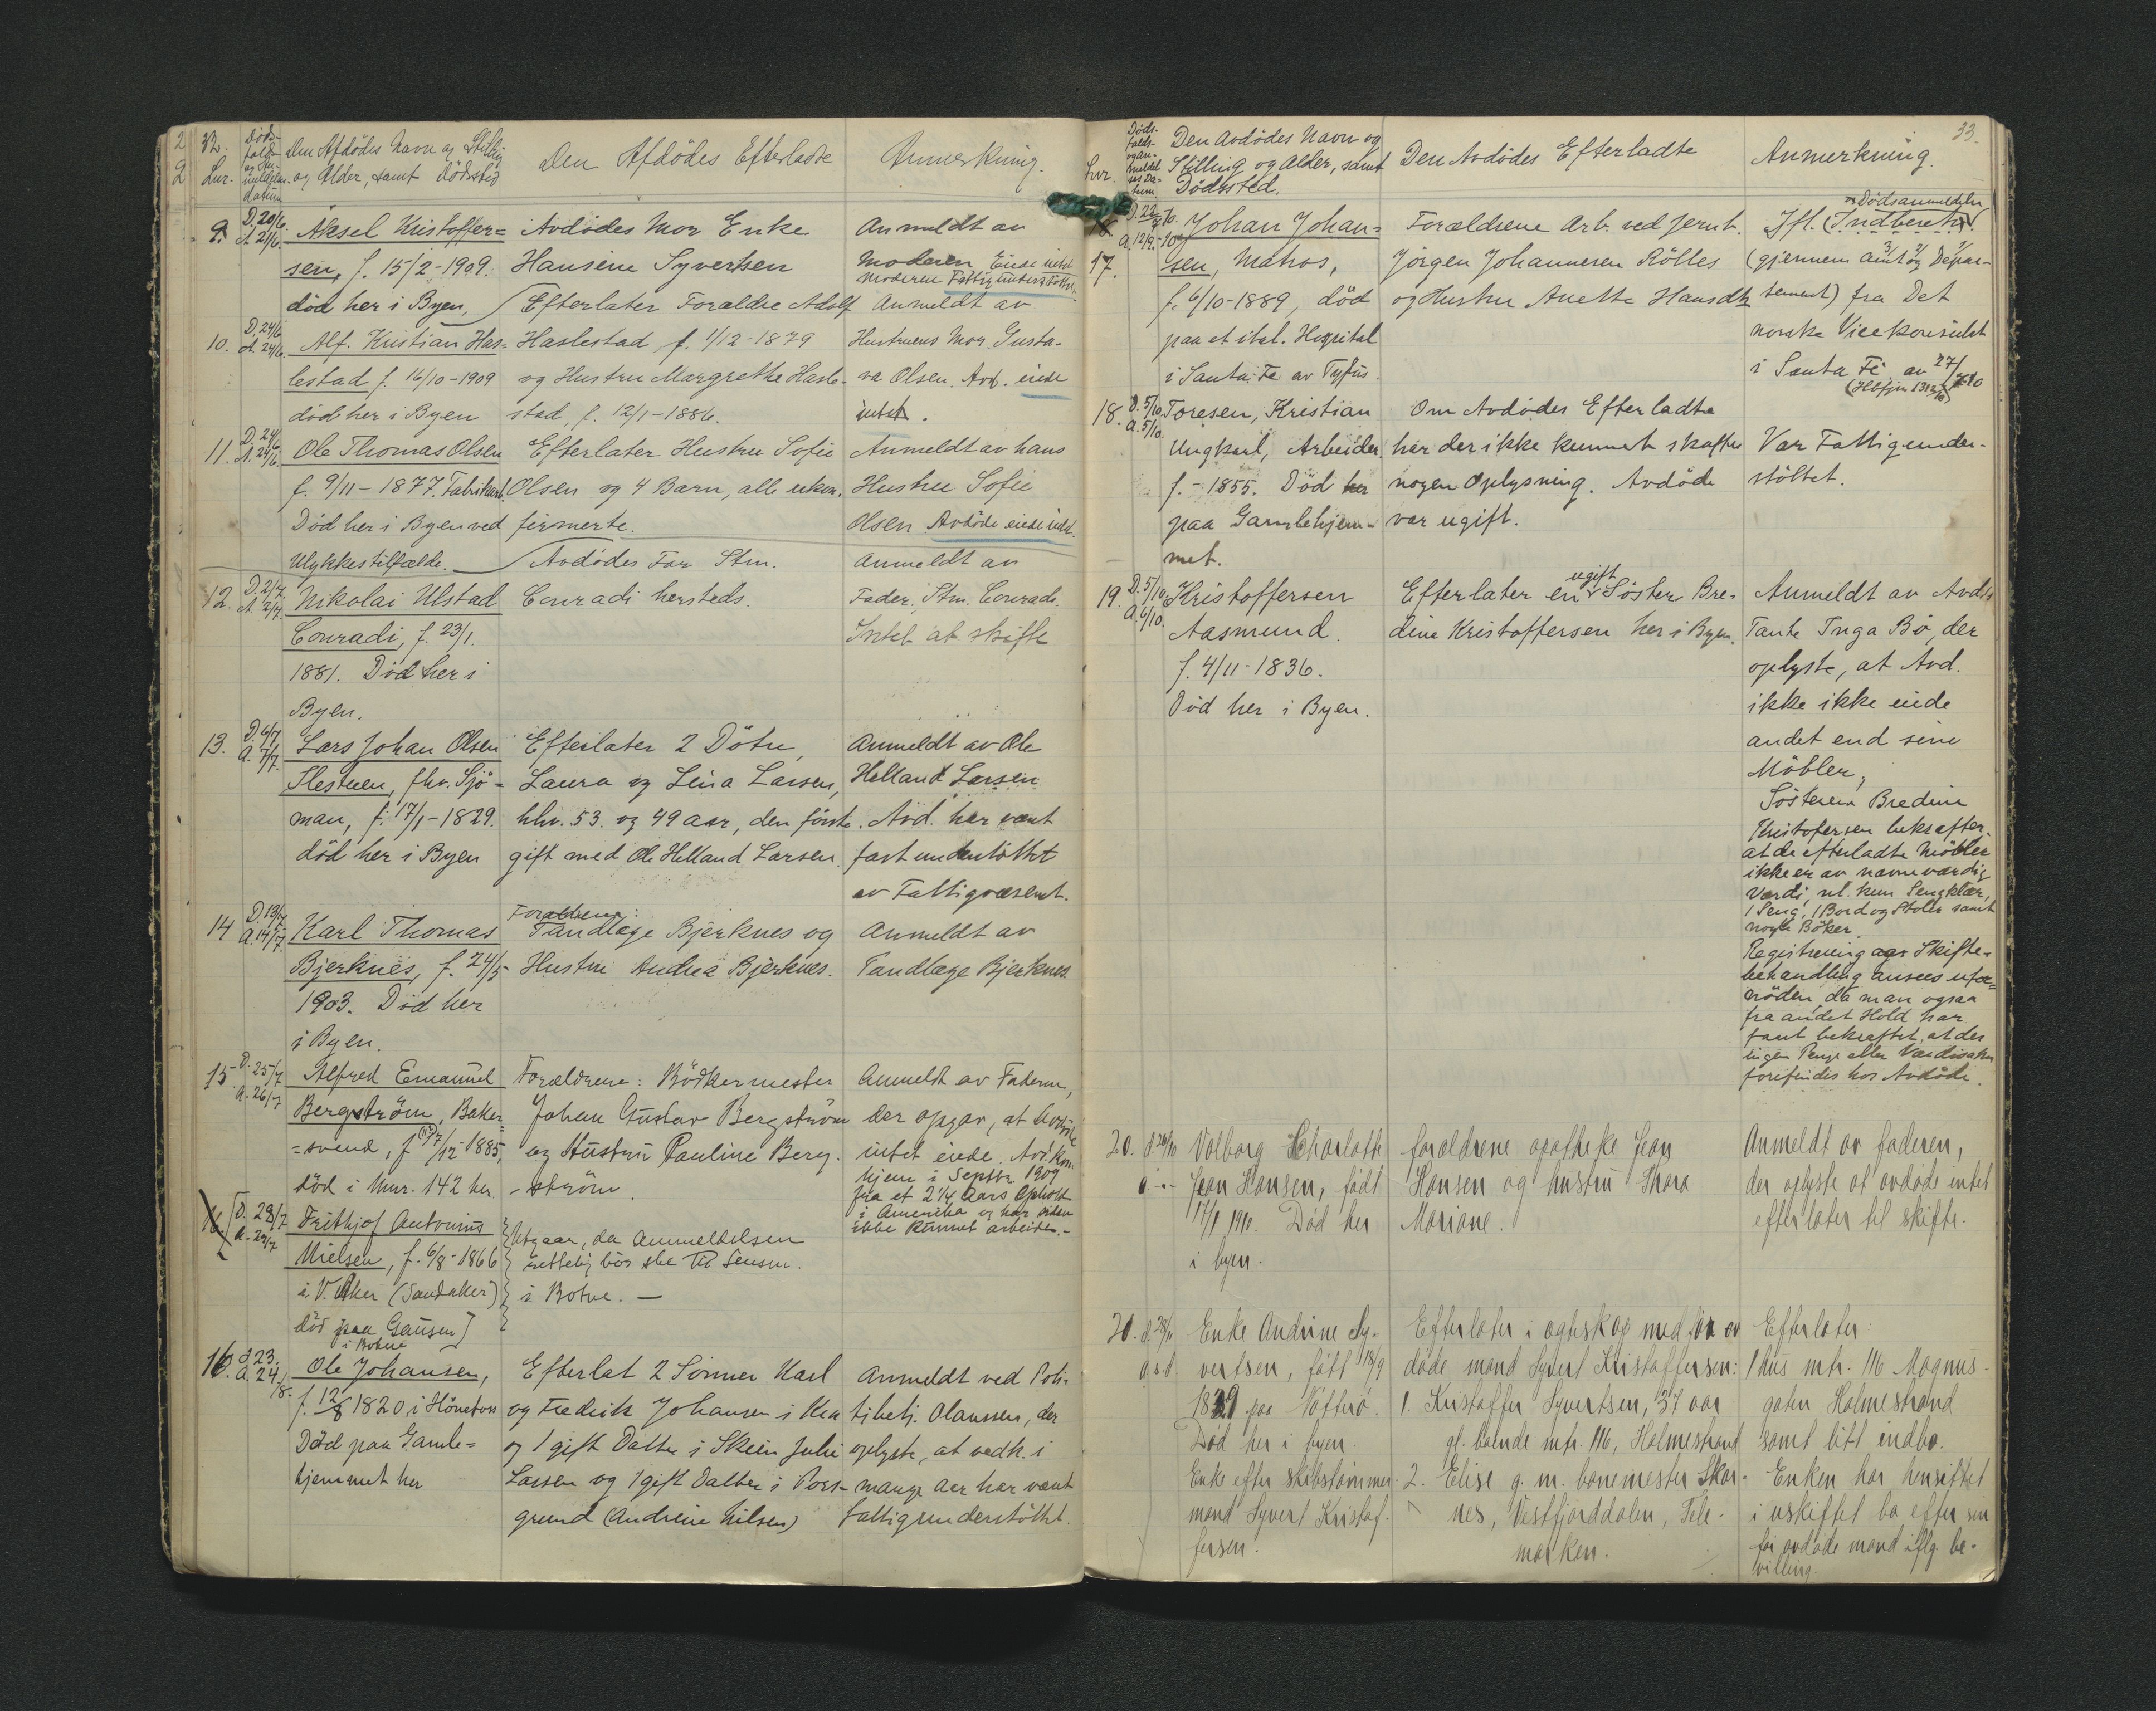 32.
Lnr.
Döds-
falds
og an-
meldelses-
datum
Den Afdödes Navn og Stilling
og Alder, samt Dödssted
Den Afdödes Efterladte
Anmerkning.
9.
D. 20/6.
A. 21/6.
Aksel Kristoffer=
sen, f. 15/2-1909.
död her i Byen,
Avdödes Mor Enke
Hansene Syvertsen
Anmeldt av
Moderen Eiede intet
Moderen Fattigunderstöttet.
10.
D. 24/6
A. 24/6.
Alf. Kristian Has=
lestad f. 16/10-1909
död her i Byen
Efterlater Foraldre Adolf
Haslestad, f. 1/12-1879
og Hustru Margrethe Hasle-
stad, f. 12/1-1886.
Anmeldt av
Hustruens Mor Gusta-
va Olsen. Avd. eiede
intet.
11.
D. 24/6
A. 24/6.
Ole Thomas Olsen
f. 9/11-1877. Fabrikarb.
Död her i Byen ved
Ulykkestilfælde.
Efterlater Hustru Sofie
Olsen og 4 Barn, alle ukon-
firmerte.
Anmeldt av hans
Hustru Sofie
Olsen. Avdöde eiede intet.
12.
D. 2/7.
A. 2/7.
Nikolai Ulstad
Conradi, f. 23/1.
1881. Död her i
Byen.
Avdödes Far Stm.
Conradi hersteds.
Anmeldt av
Fader, Stm. Conradi.
Intet at skifte
13.
D. 6/7
A. 7/7.
Lars Johan Olsen
Slestuen, fhv. Sjö=
man, f. 17/1-1829.
död her i Byen
Efterlater 2 Dötre,
Laura og Lina Larsen,
hhv. 53. og 49 aar, den förste
gift med Ole Helland Larsen.
Anmeldt av Ole
Helland Larsen
. Avd. har vært
fast understöttet
av Fattigvæsenet.
14
D. 13/7
A. 14/7
Karl Thomas
Bjerknes, f. 24/5
1903. Död her
i Byen.
Forældrene:
Tandlæge Bjerknes og
Hustru Andrea Bjerknes.
Anmeldt av
Tandlæge Bjerknes.
15
D. 25/7
A. 26/7
Alfred Emanuel
Bergström, Baker=
=svend, f. 7/12 1885,
död i Mnr. 142 her.
Forældrene: Bödkermester
Johan Gustav Bergström
og Hustru Pauline Berg-
-ström.
Anmeldt av Faderen,
der opgav, at Avdöde
intet eiede. Avd. kom
hjem i Septbr 1909
fra et 2 1/4 Aars Ophold
i Amerika og har siden
ikke kunnet arbeide.-
16
D. 28/7
A. 29/7
Frithjof Antonius
Nielsen, f. 6/8-1866
i V. Aker (Sandaker)
död paa Gausen
i Botne
Utgaar, da Anmeldelsen
rettelig bör ske til Lensm.
i Botne. —
16.
d. 23.
A. 24./8.
Ole Johansen,
f. 12/8 1820 i Hönefoss
Död paa Gamle=
hjemmet her
Efterlat 2 Sönner Karl
og Fredrik Johansen i Kra
og 1 gift Datter i Skien Julie
Larsen og 1 gift Datter i Pors-
grund (Andrine Nilsen)
Anmeldt ved Poli-
tibetj. Olaussen, der
oplyste, at vedk. i
mange aar har vært
fattigunderstöttet.
33.
Lnr.
Döds-
falds-
og an-
meldel-
ses Da-
tum
Den Avdödes Navn og
Stilling og Alder, samt
Dödssted.
Den Avdödes Efterladte
Anmerkning.
17.
A. 12/9.-10
Johan Johan=
sen, Matros,
f. 6/10-1889, död
paa et ital. Hospital
i Santa Fe av Tyfus.
Forældrene Arb. ved Jernb.
Jörgen Johannesen Rölles
og Hustru Anette Hansdtr
Dödsanmeldelse
Ifl. (Indberetn)
(gjennem Amt og Depar-
tement) fra Det
norske Vicekonsulat
i Santa Fé av 27/7 10
18.
D. 5/10
A. 5/10.
Toresen, Kristian
Ungkarl, Arbeider.
f. - 1855. Död her
paa Gamlehjem-
met.
Om Avdödes Efterladte
har der ikke kunnet skaffes
nogen Oplysning. Avdöde
var ugift.
Var Fattigunder-
stöttet.
19.
D. 5/10
A. 6/10.
Kristoffersen
Aasmund.
f. 4/11-1836.
Död her i Byen.
ugift
Efterlater en Söster Bre-
dine Kristoffersen her i Byen.
Anmeldt av Avdds
Tante Inga Bö, der
oplyste, at Avd.
ikke ikke eiede
andet end sine
Möbler,
Sösteren Bredine
Kristofersen bekræfter,
at de efterladte Möbler
ikke er av nævneværdig
Værdi, nl. kun Sengklær,
1 Seng, 1 Bord og Stoler samt
nogle Böker.
Registrering og Skifte-
behandling ansees ufor=
nöden, da man ogsaa
fra andet Hold har
faat bekræftet, at der
ingen Penge eller Værdisaker
forefindes hos Avdöde.
20.
d. 26/10
a -
Valborg Charlotte
Jean Hansen, född
17/1 1910. Død her
i byen.
forældrene apotheker Jean
Hansen og hustru Thora
Mariane.
Anmeldt av faderen,
der oplyste at avdøde intet
efterlater til skifte.
20.
d. 28/11
a s.d.
Enke Andrine Sy-
vertsen, född 18/9
1829 paa Nötterö.
Død her i byen.
Enke efter skibstømmer-
mand Syvert Kristof-
fersen.
Efterlater i ægteskap med før av
døde mand Syvert Kristoffersen:
1. Kristoffer Syvertsen, 37 aar
gl. boende mtr. 116, Holmestrand
2. Elise g. m. banemester Skar-
nes, Vestfjorddalen, Tele-
marken.
Efterlater:
1 hus mtr. 116 Magnus-
gaten Holmestrand
samt litt indbo.
Enken har hensittet
i uskiftet bo efter sin
før avdøde mand iflg. be-
villing.